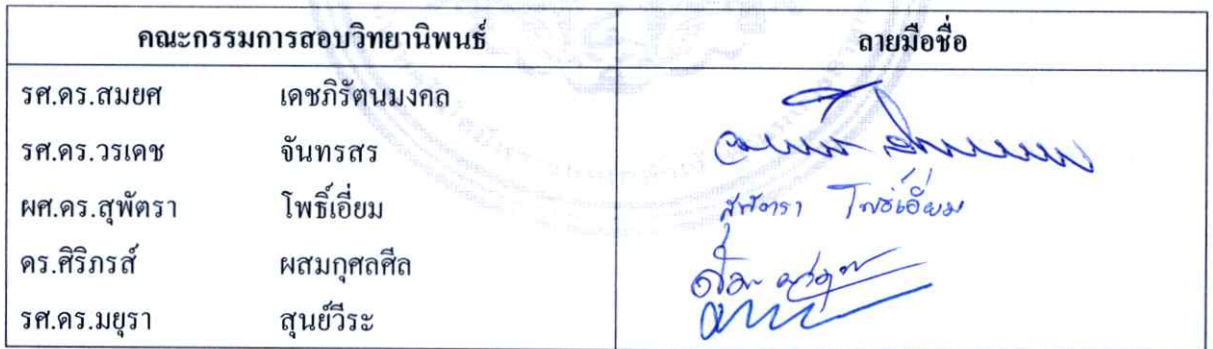 คณะกรรมการสอบวิทยานิพนธ์ ลายมือชื่อ
รศ.ดร.สมยศ เดชภิรัตนมงคล
รศ.ดร.วรเดช จันทรสร
ผศ.ดร.สุพัตรา โพธิ์เอี่ยม สุพัตรา โพธิ์เอี่ยม
ดร.ศิริภรส์ ผสมกุศลศีล
รศ.ดร.มยุรา สุนย์วีระ